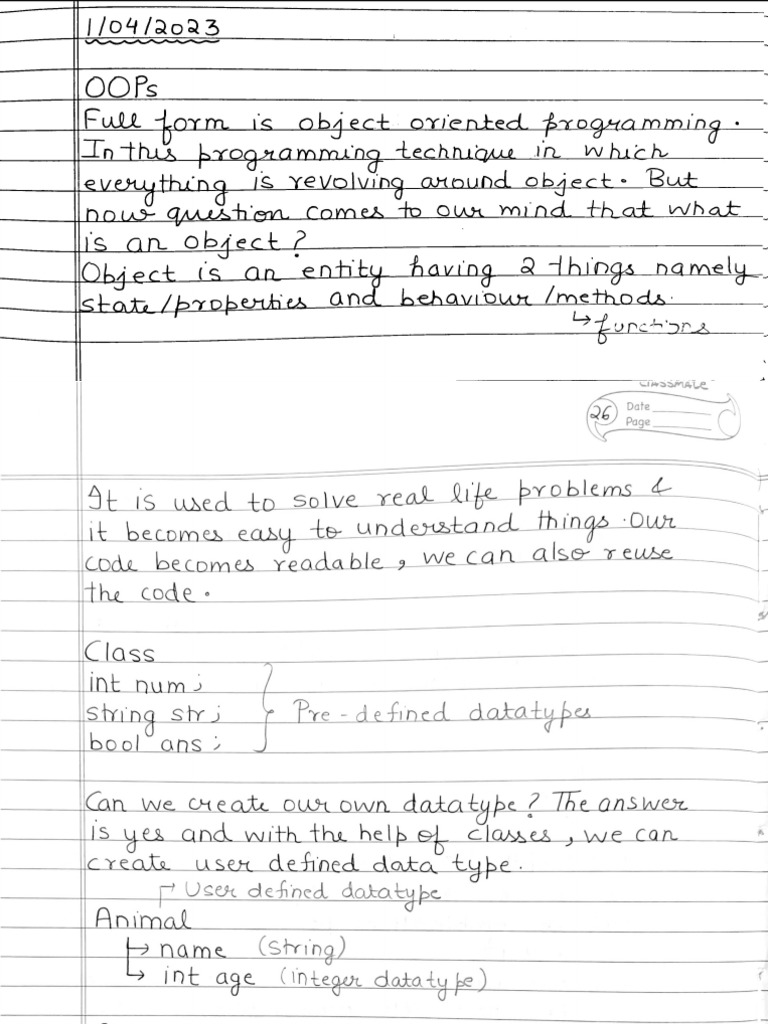 1/04/2023
OOPs
Full form is object oriented programming.
In this programming technique in which
everything is revolving around object. But
now question comes to our mind that what
is an object?
Object is an entity having 2 things namely
state/properties and behaviour/methods.
↳ functions
classmate
26
Date
Page
It is used to solve real life problems &
it becomes easy to understand things. Our
code becomes readable, we can also reuse
the code.
Class
int num;
string str;
Pre-defined datatypes
bool ans;
Can we create our own datatype? The answer
is yes and with the help of classes, we can
create user defined data type.
↱ User defined datatype
Animal
↳ name (string)
↳ int age (integer datatype)